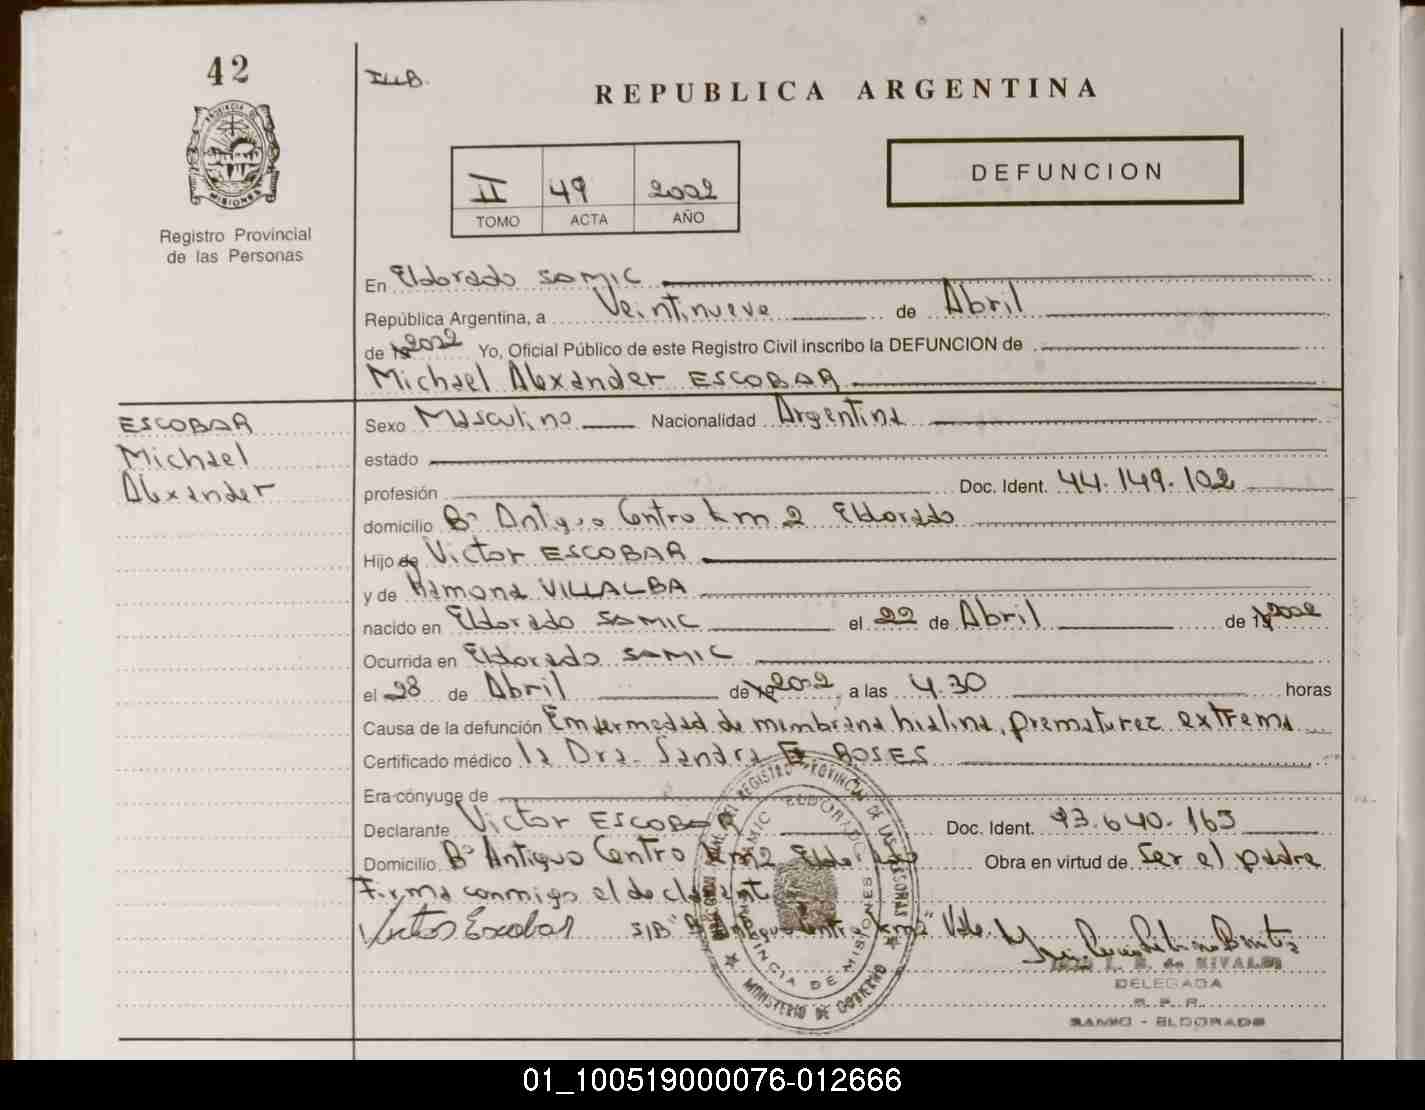 42
I.LL.B.
REPUBLICA ARGENTINA
DEFUNCION
II 49 2002
TOMO ACTA AÑO
Registro Provincial
de las Personas
En Eldorado SAMIC
República Argentina, a Veintinueve de Abril
de 2002 Yo, Oficial Público de este Registro Civil inscribo la DEFUNCION de
Michael Alexander ESCOBAR
ESCOBAR
Michael
Alexander
Sexo Masculino Nacionalidad Argentina
estado
profesión Doc. Ident. 44.149.102
domicilio Bº Antiguo Centro km 2 Eldorado
Hijo de Victor ESCOBAR
y de Ramona VILLALBA
nacido en Eldorado SAMIC el 22 de Abril de 2002
Ocurrida en Eldorado SAMIC
el 28 de Abril de 2002 a las 4.30 horas
Causa de la defunción Enfermedad de membrana hialina, prematurez extrema
Certificado médico la Dra. Sandra E. ROSES
Era cónyuge de
Declarante Victor ESCOBAR Doc. Ident. 93.640.165
Domicilio Bº Antiguo Centro km 2 Eldorado Obra en virtud de Ser el padre
Firma conmigo el declarante
Victor Escobar S/B "Bº Antiguo Centro km 2" Vale.
DE RIVALDI
DELEGADA
R. P. P.
SAMIC - ELDORADO
REGISTRO PROVINCIAL DE LAS PERSONAS
SAMIC ELDORADO
PROVINCIA DE MISIONES
MINISTERIO DE GOBIERNO
01_100519000076-012666